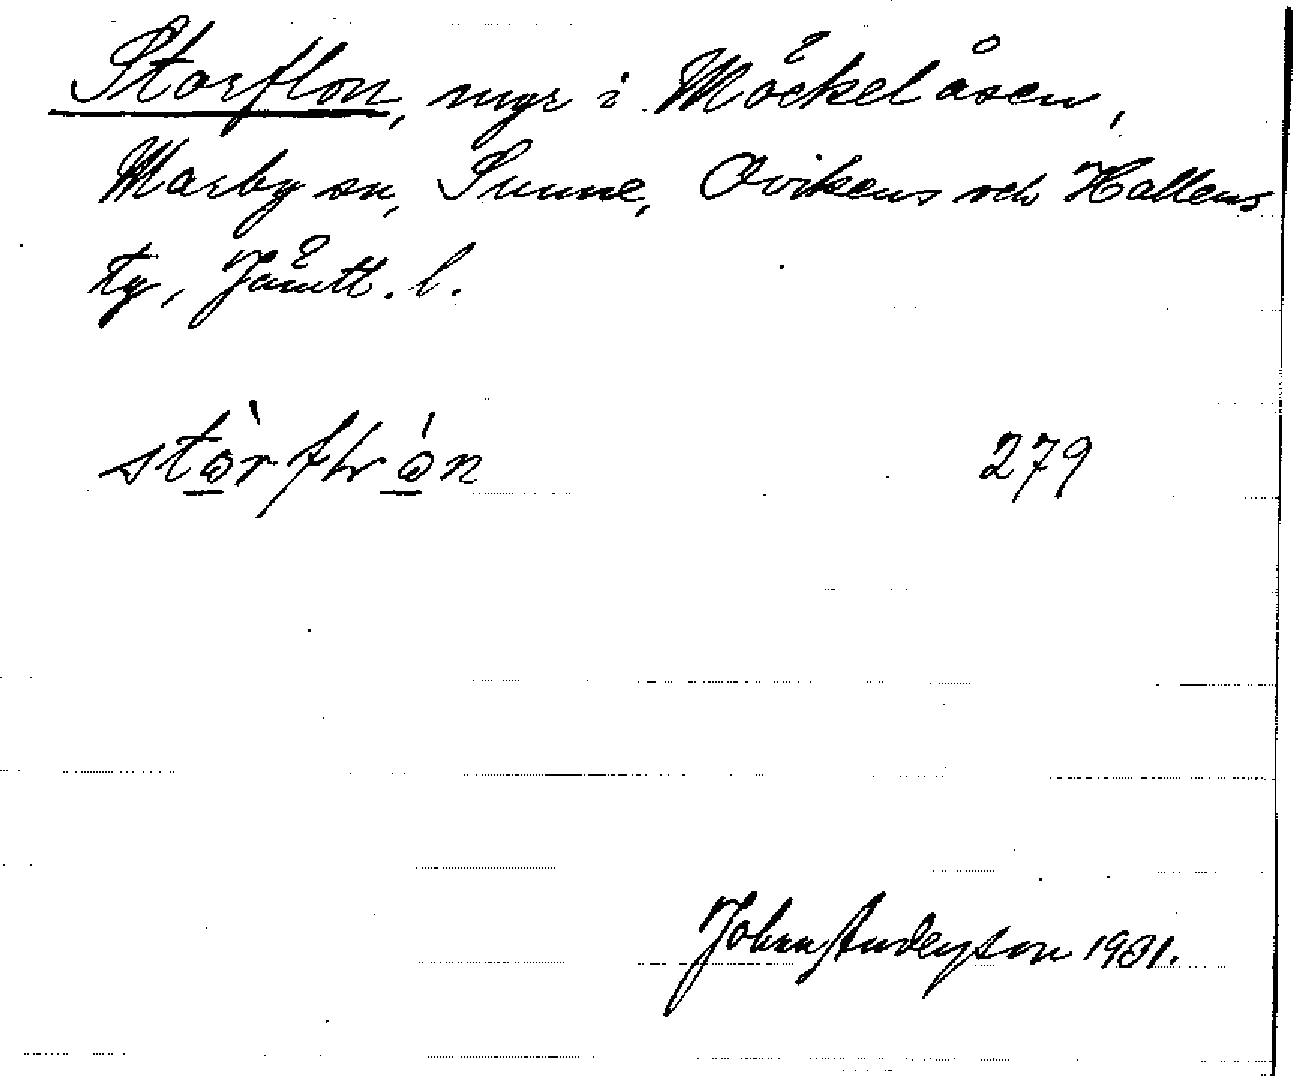 Storflon, myr i Möckelåsen,
Marby sn, Sunne, Ovikens och Hallens
tg, Jämtl. l.
279
Johan Anderson 1931.